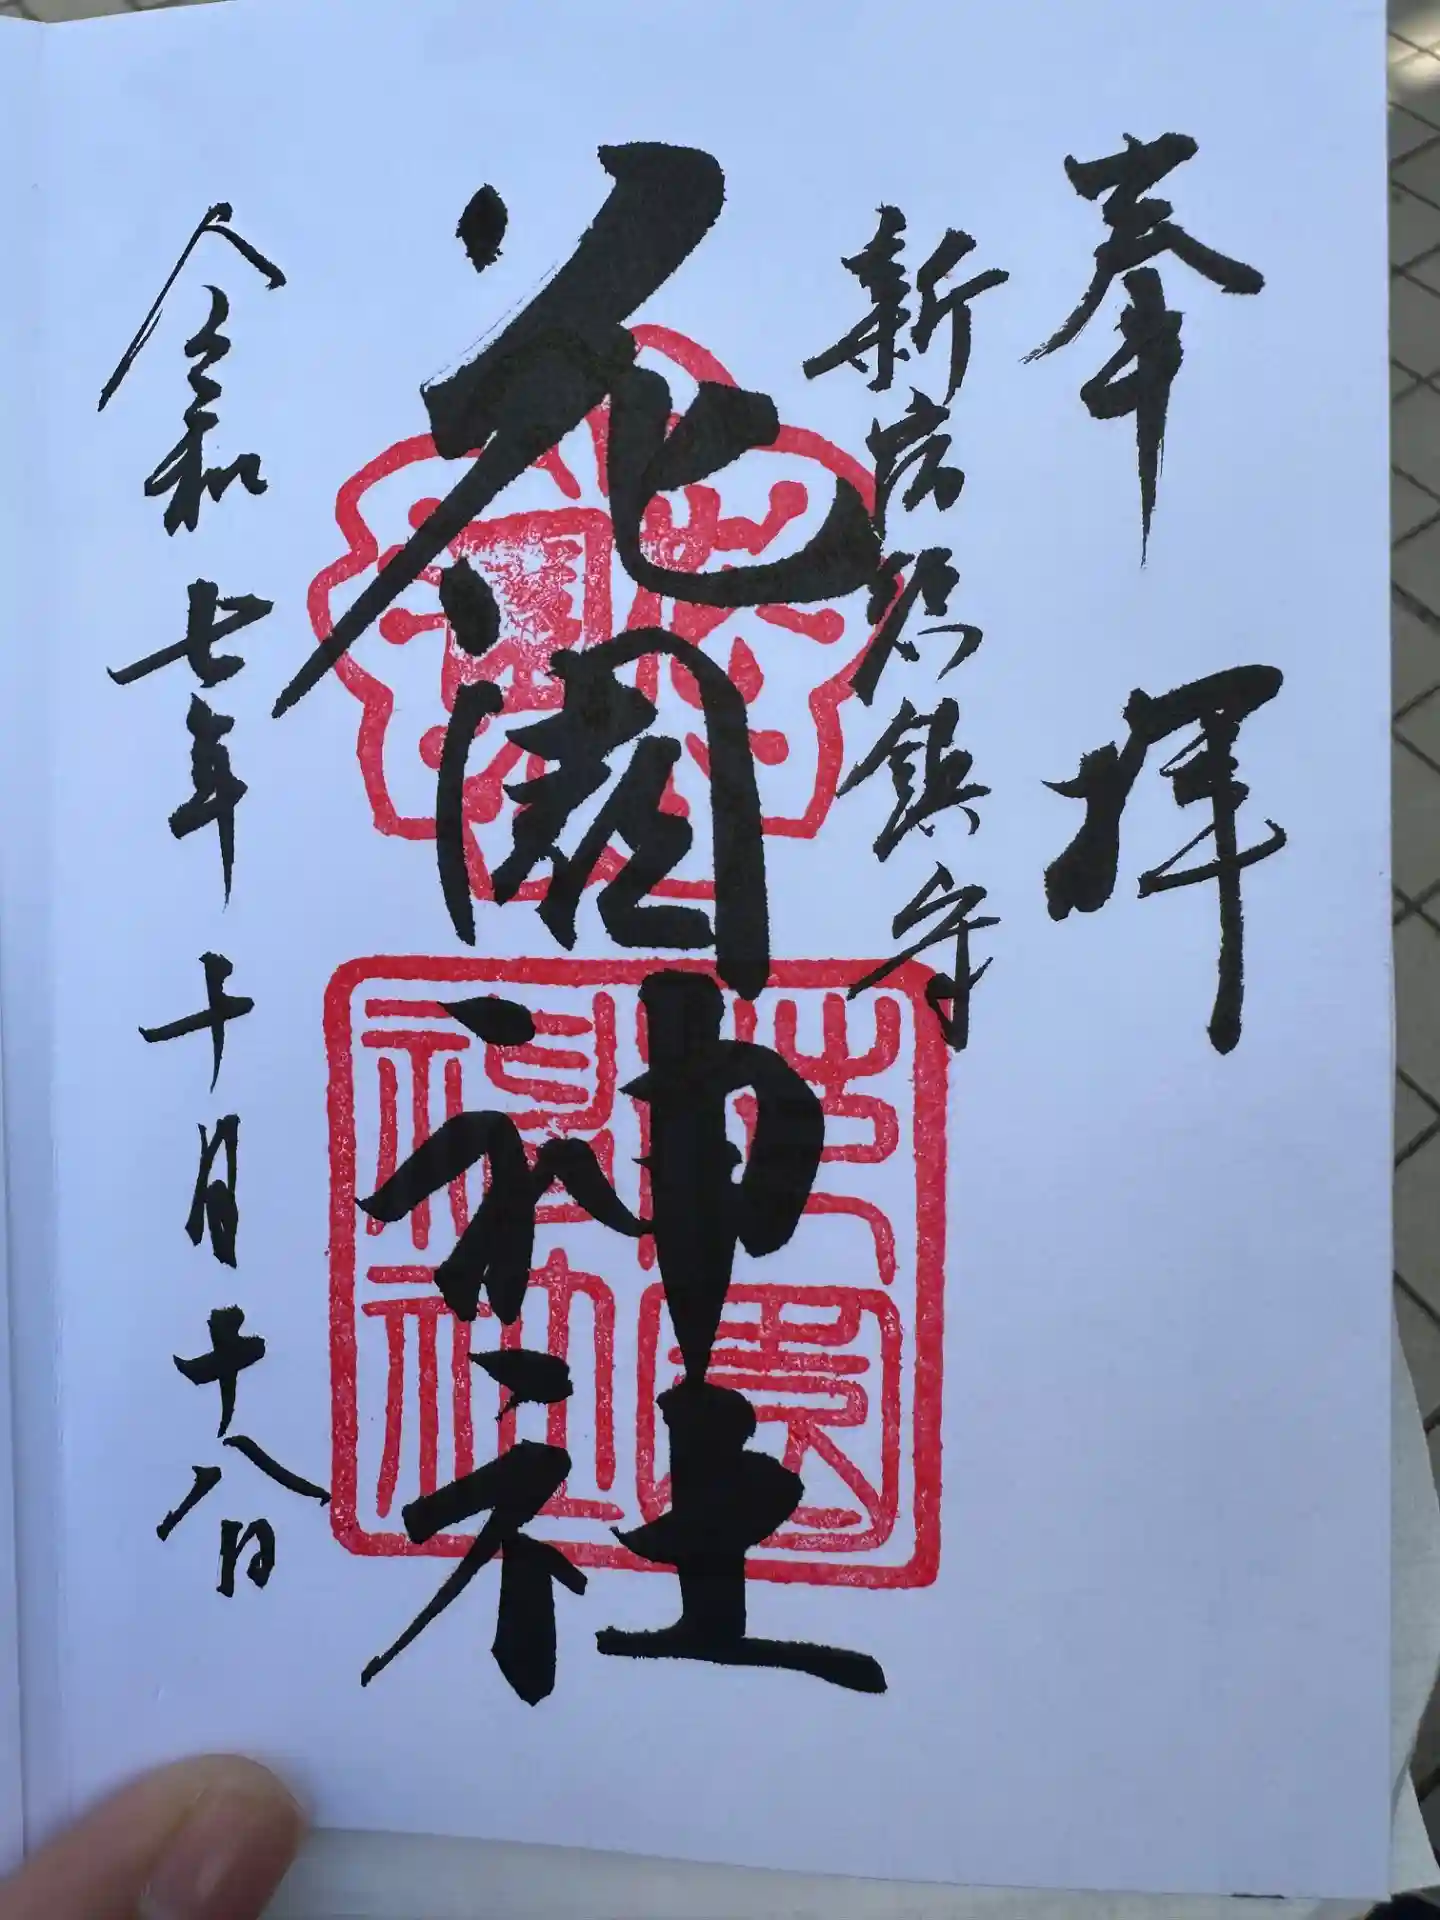 奉拝
新宿総鎮守
花園神社
花園神社
令和七年十月十八日